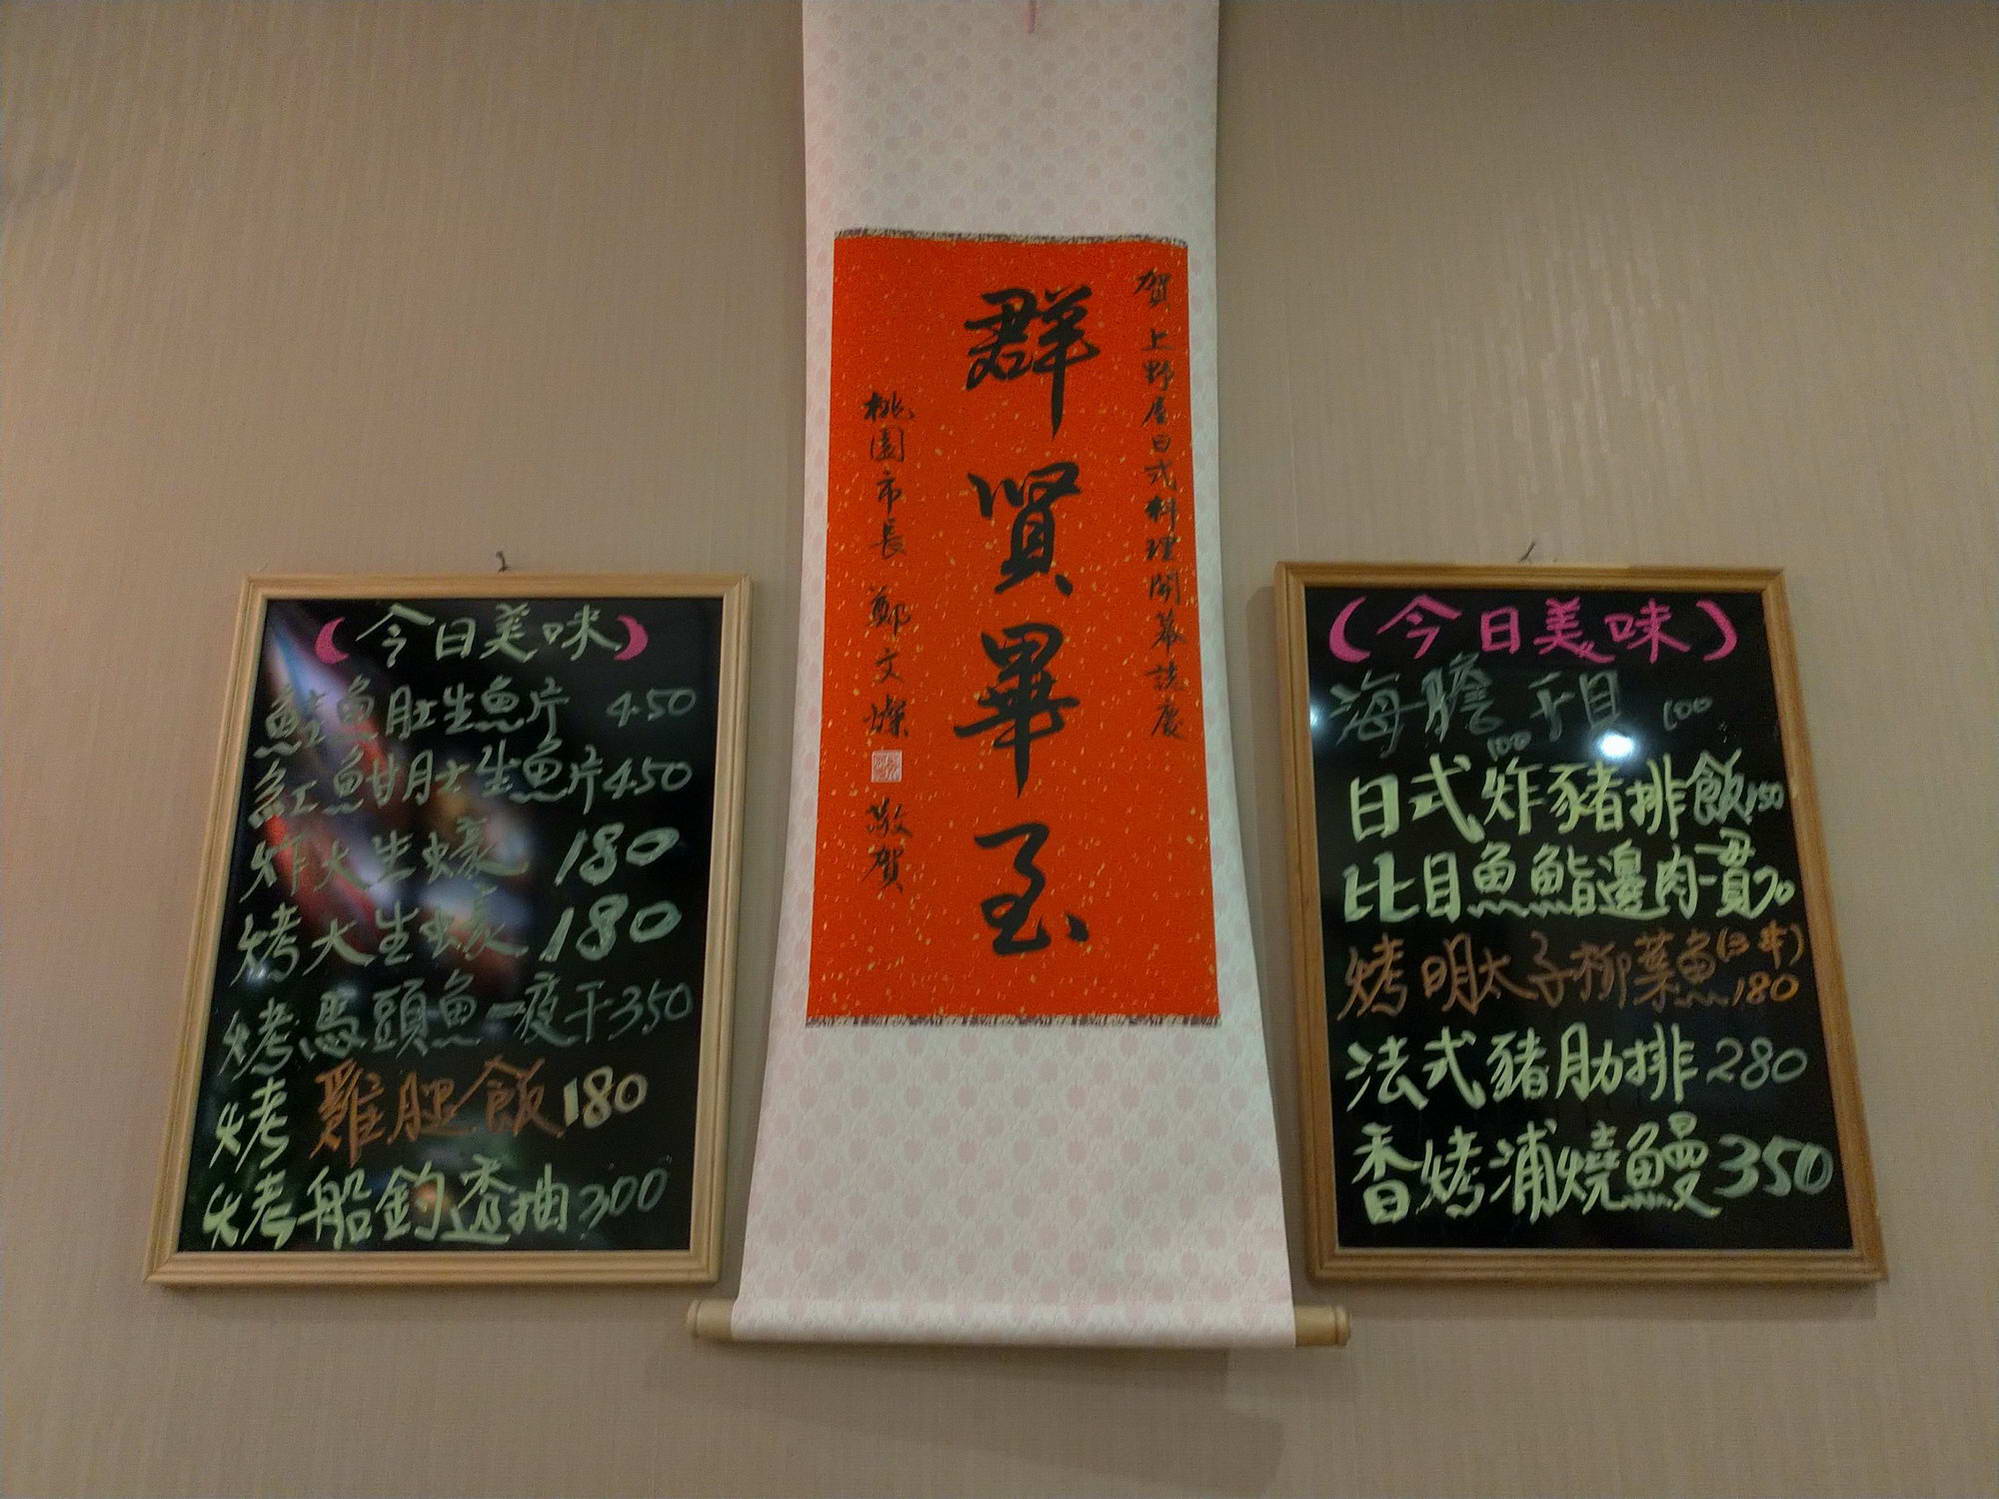 (今日美味)
鮭魚肚生魚片 450
紅魽肚生魚片 450
炸大生蠔 180
烤大生蠔 180
烤馬頭魚一夜干 350
烤雞腿飯 180
烤船釣透抽 300
賀 上野屋日式料理開幕誌慶
群賢畢至
桃園市長 鄭文燦 敬賀
(今日美味)
海膽 干貝 100
100
日式炸豬排飯 150
比目魚鮨邊肉一貫 70
烤明太子柳葉魚(3串) 180
法式豬肋排 280
香烤浦燒鰻 350